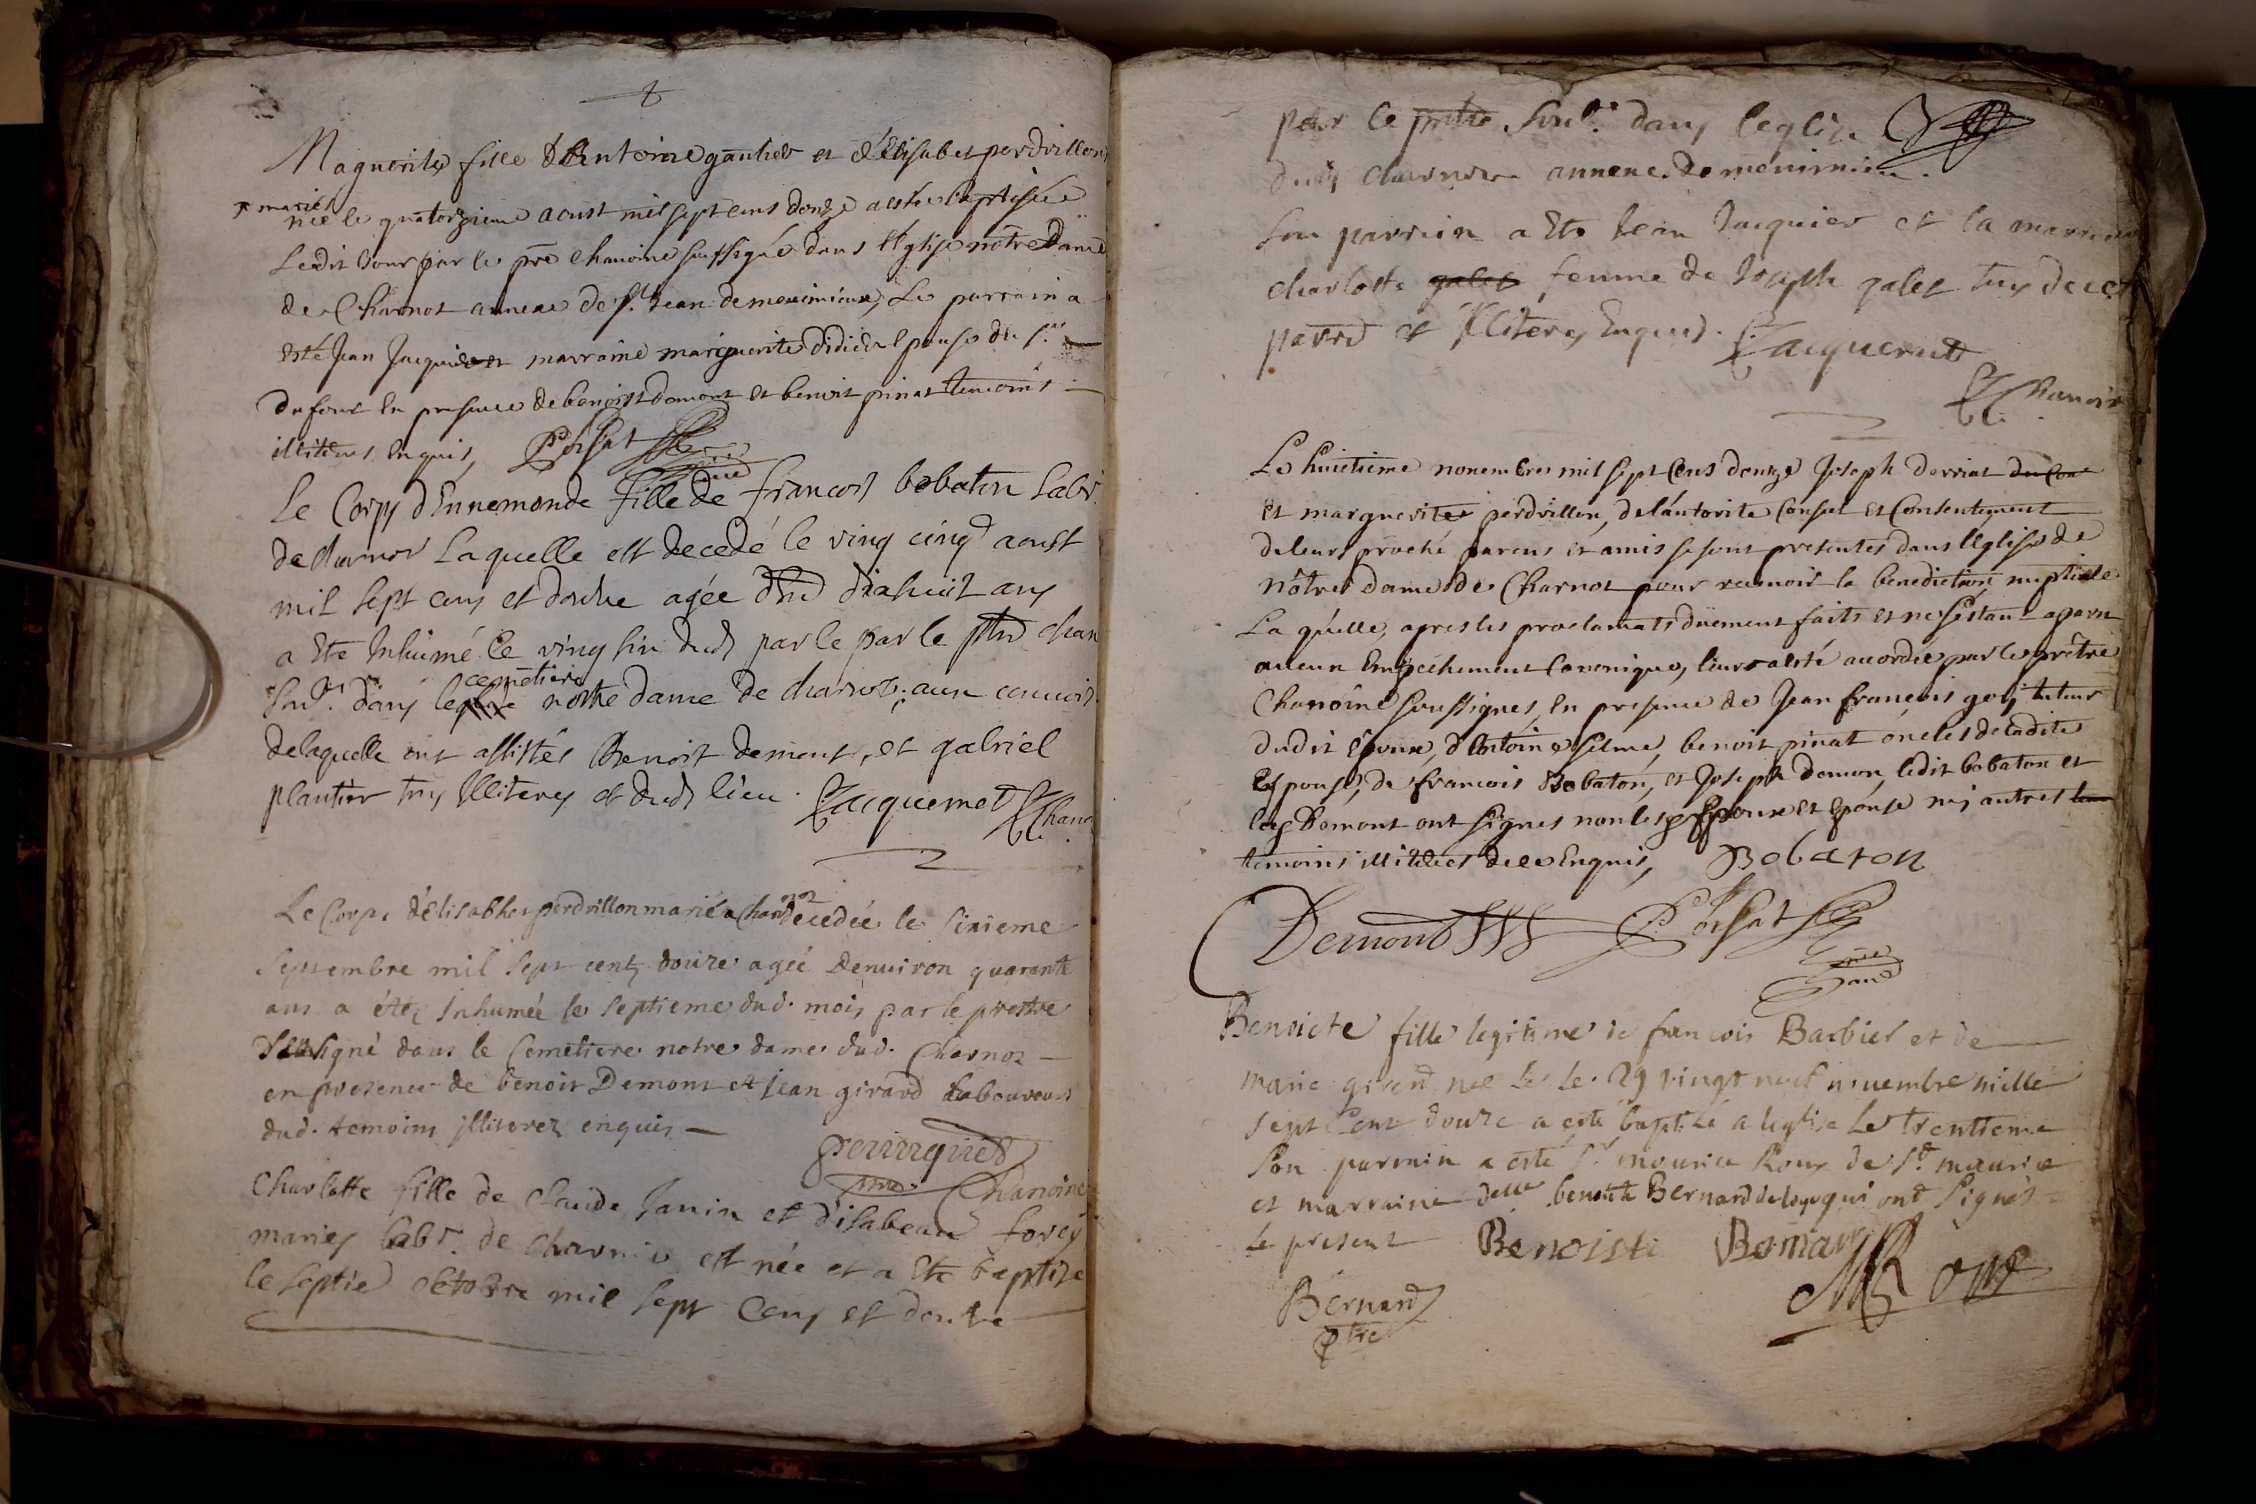 Marguerite fille d'Antoine gautier et d'Elisabet perdrillon
* mariés
née le quatorzieme aoust mil sept cens douze a esté baptisée
Ledit Jour par le pre chanoine soussigné dans l'Eglise nôtre Dame
de Charnoz annexe de st Jean de meximieux, Le parrain a
esté Jean Jacquier et marraine marguerite didier Epouse du sr
dufour En presence de benoist demont et benoit pinat temoins
illiteres Enquis, Porsat
Le Corps d'Ennemonde fille de francois bobaton labr
de charnoz Laquelle est decedé le ving cinq aoust
mil sept cens et douze agée dhu dixhuit ans
a Ete Inhumé le ving six dud par le par le ptre chan
sousné dans le cemetiere nostre dame de charnoz; aux convois
delaquelle ont assistés Benoit demont, et gabriel
plantier tms Illiteres et dud lieu. Jacquemet Chan
Le Corps d'élisabhet perdrillon marié a Charnoz decedée le sixieme
septembre mil sept cents douze agée denuiron quarante
ans a étée Inhumée le septieme dud. mois par le prestre
soussigné dans le Cemetiere notre dame dud. Charnoz
en presence de benoit Demont et jean girard laboureurs
dud. temoins jlliterez enquis
perruquet
Chanoine
Charlotte fille de Claude Janin et d'isabeau forey
mariez labr. de Charnoz est née et a Ete baptize
le septie octobre mil sept Cens et douze
par le prttre sousné. dans leglize
dud charnoz annexe de meximieu.
son parrein a Ete Jean Jacquier et la marreine
charlotte galet femme de Joseph galet tms de cet
parrd et Illiteres Enquis. Jacquemet
Chanoine
Le huictieme nouembre mil sept Cens douze Joseph derriat du Con
et marguerite perdrillon, de l'autorite Conseil et Consentement
de leurs proche parens et amis se sont presentes dans l'Eglise de
nôtre dame de Charnoz pour receuoir la benediction nuptiale
La quelle, apres les proclamats düement faits et ne s'estant aparu
aucun Empechement Canonique, leurs a esté accordée par le prêtre
Chanoine soussignés, En presence de Jean françois goy tuteur
dudit Epoux, d'Antoine selme, benoit pinat oncles de ladite
Espouse, de francois Bobaton, et Joseph demon, ledit bobaton et
led Demont ont signes non les Espoux et Epouse ni autres
temoins illiteres de ce Enquis, Bobaton
Demont Porsat
Benoicte fille legitime de francois Barbier et de
marie girerd née le le 29 vingt neuf nouembre mille
sept Cent douze a esté baptizé a leglise Le trentieme
son parrain a esté sr mourice Roux de st maurice
et marraine delle benoite Bernard qui ont signés
le present Benoiste Bernard
MRoux
Bernard
ptre